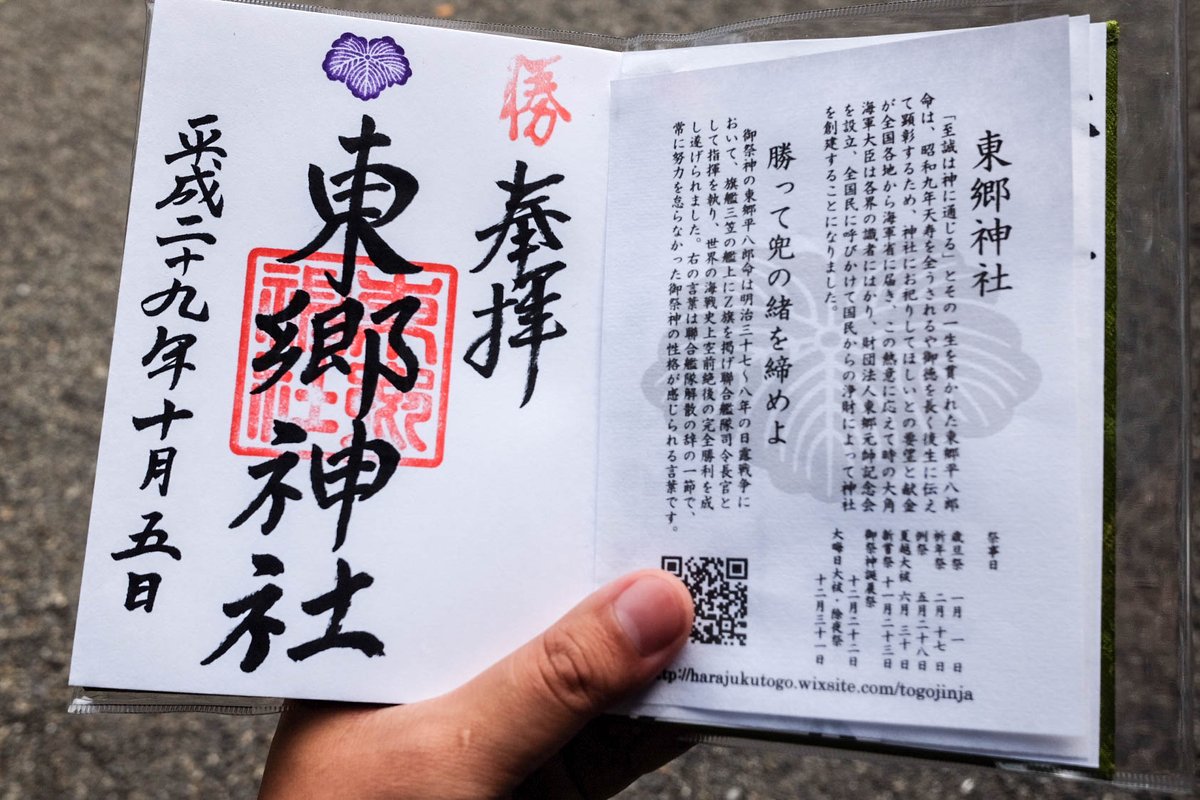 東郷神社
「至誠は神に通じる」とその一生を貫かれた東郷平八郎
命は、昭和九年天寿を全うされるや御徳を長く後生に伝え
て顕彰するため、神社にお祀りしてほしいとの要望と献金
が全国各地から海軍省に届き、この熱意に応えて時の大角
海軍大臣は各界の識者にはかり、財団法人東郷元帥記念会
を設立、全国民に呼びかけて国民からの浄財によって神社
を創建することになりました。
勝って兜の緒を締めよ
御祭神の東郷平八郎命は明治三十七～八年の日露戦争に
おいて、旗艦三笠の艦上にZ旗を掲げ聯合艦隊司令長官と
して指揮を執り、世界の海戦史上空前絶後の完全勝利を成
し遂げられました。右の言葉は聯合艦隊解散の辞の一節で、
常に努力を怠らなかった御祭神の性格が感じられる言葉です。
祭事日
歳旦祭 一月 一日
祈年祭 二月十七日
例祭 五月二十八日
夏越大祓 六月三十日
新嘗祭 十一月二十三日
御祭神誕辰祭
十二月二十二日
大晦日大祓・除夜祭
十二月三十一日
ttp://harajukutogo.wixsite.com/togojinja
勝
奉拝
東郷神社
平成二十九年十月五日